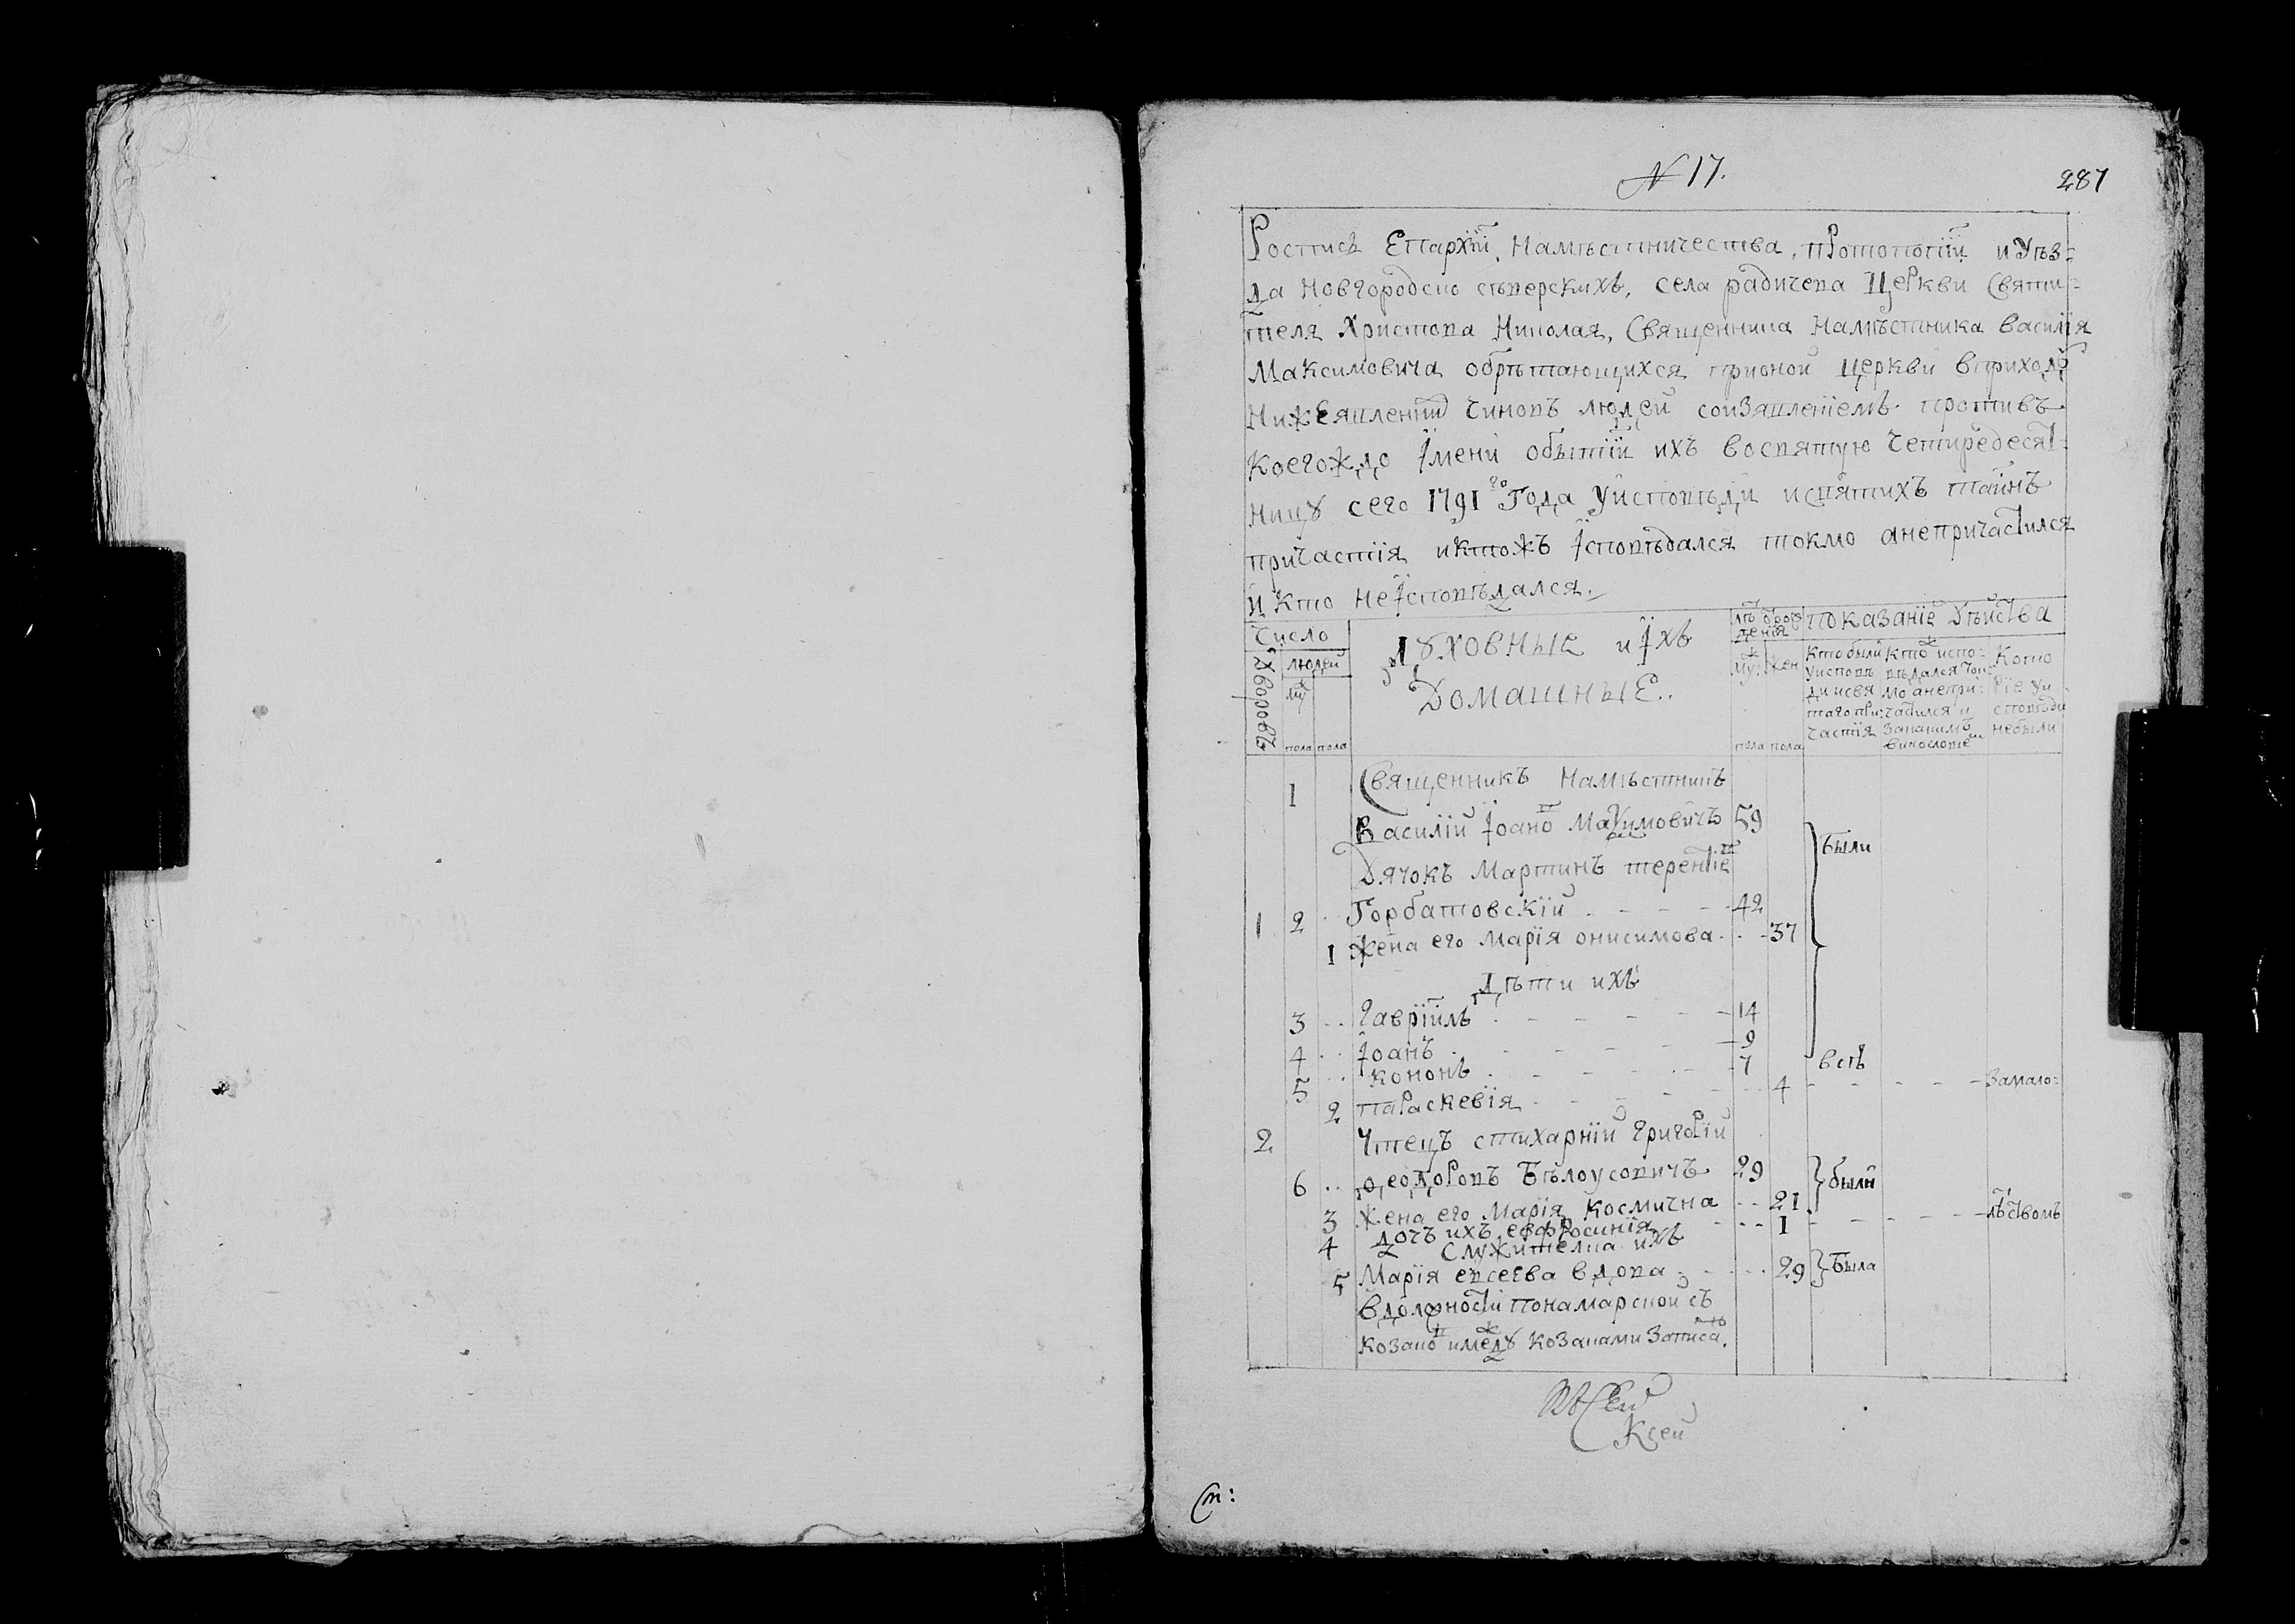 N 17.
287
Роспись Епархіи, Намѣстничества, протопопіи и Уѣз-
да Новгородско сѣверскихъ, села радичева Церкви Святи-
теля Христова Николая, Священника Намѣстника Василія
Максимовича обрѣтающихся прионой церкви вприходѣ
Нижеявленнихъ чиновъ людей соизявленіемъ противъ
Коегождо Імени обытіи ихъ восвятую Четиредесят-
ницу сего 1791 го Года Уисповѣди исвятихъ таинъ
причастія иктожъ Ісповѣдался токмо анепричастился
и Кто неІсповѣдался.
Число
дворовъ
людей
муж
пола пола
Духовные и Іхъ
Домашные..
лѣтъ отрож
денія
муж: жен
пола пола
Показаніе Дѣйства
Кто были
Уисповѣ
ди исвя
таго при:
частія
Кто испо:
вѣдался ток
мо анепри:
частился и
Закакимъ
винословіем
Кото
ріе Уи
сповѣди
небыли
1 Священникъ Намѣстникъ
Василій Іоанов Максимовичъ 59
были
Дячокъ Мартинъ терентіев
1 2 .. Горбатовскій - - - - 42
1 жена его Марія онисимова - - - 37
Дѣти ихъ
3 .. Гавріилъ - - - - - 14
4 .. Іоанъ - - - - - 9
5 .. Кононъ - - - - - 7 всѣ
2 параскевія - - - - - 4 - - - - - Замало:
2 Чтецъ стихарній Григорій
6 .. Ѳеодоровъ Бѣлоусовичъ 29 были
3 жена его Марія Космична - - 21
4 дочъ ихъ евфросинія - - - 1 - - - - - лѣтствомъ
Служителка ихъ
5 Марія евсеева вдова - - - 29 Была
Вдолжности понамарской съ
козаков имежду козаками Записанъ.
Ксей
Сп: